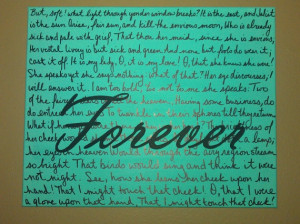 But, soft! what light through yonder window breaks? It is the east, and Juliet
is the sun. Arise, fair sun, and kill the envious moon, Who is already
sick and pale with grief, That thou her maid
Her vestal livery is but sick and green And none but fools do wear it;
cast it off. It is my lady, O, it is my love! O, that she knew she were!
She speaks yet she says nothing: what of that? Her eye discourses; I
will answer it. I am too bold, 'tis not to me she speaks: Two
of the fairest stars in all the heaven, Having some business, do
do entreat her eyes To twinkle in their spheres till they return.
What if her eyes
her cheek
her eyes in heaven Would through the airy region stream
so bright That birds would sing and think it were
not night. See, how she leans her cheek upon her
hand! That I might touch that cheek! O, that I were
a glove upon that hand, That I might touch that cheek!
Forever